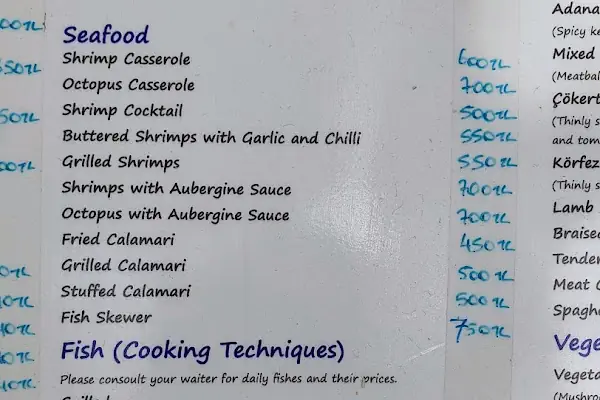 Seafood
Shrimp Casserole 600TL
Octopus Casserole 700TL
Shrimp Cocktail 500TL
Buttered Shrimps with Garlic and Chilli 550TL
Grilled Shrimps 550TL
Shrimps with Aubergine Sauce 700TL
Octopus with Aubergine Sauce 700TL
Fried Calamari 450TL
Grilled Calamari 500TL
Stuffed Calamari 500TL
Fish Skewer 750TL
Fish (Cooking Techniques)
Please consoult your waiter for daily fishes and their prices.
Adana
(Spicy
Mixed
(Thinly
and
Körfez
(Thinly
Lamb
Meat